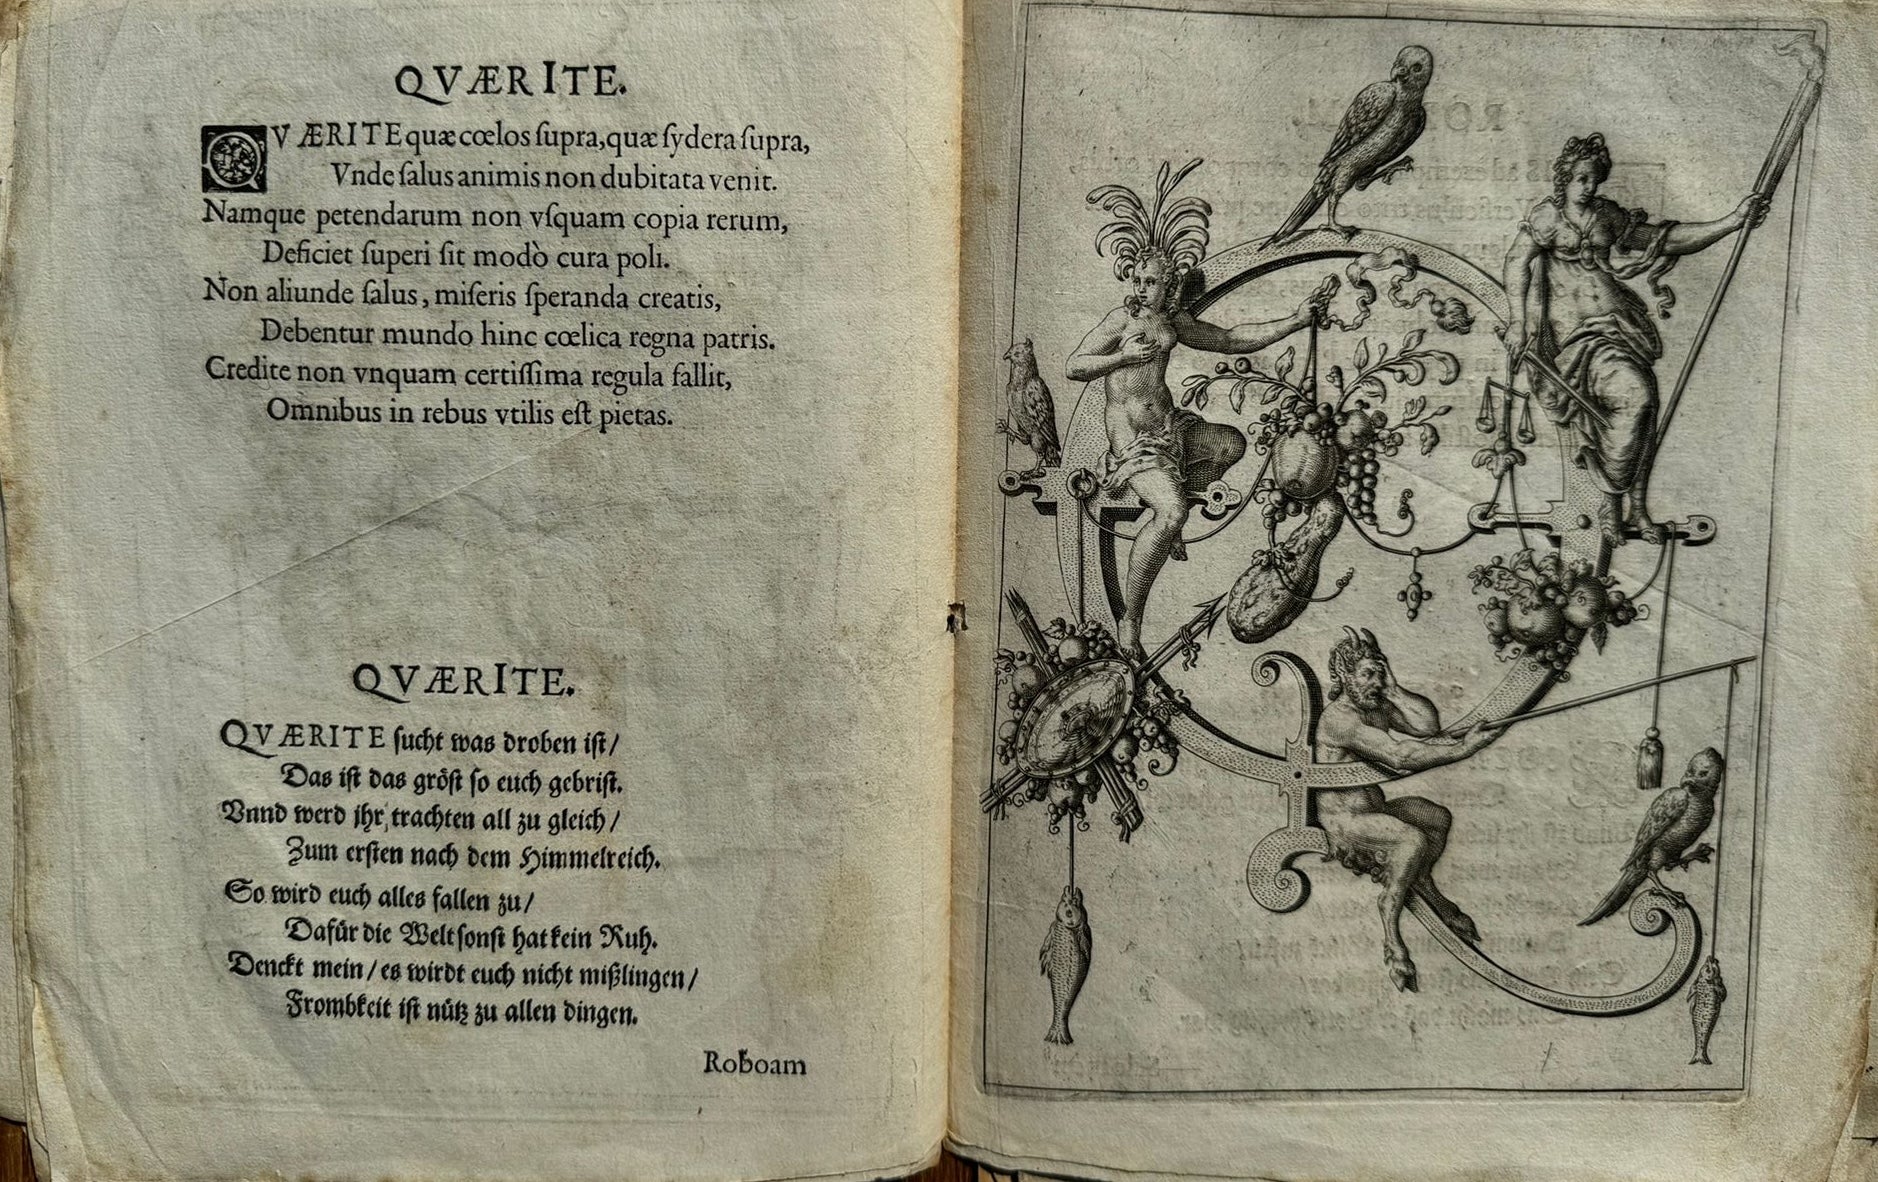 QVÆRITE.
QVÆRITE quæ cœlos ſupra, quæ ſydera ſupra,
Vnde ſalus animis non dubitata venit.
Namque petendarum non vſquam copia rerum,
Deficiet ſuperi ſit modò cura poli.
Non aliunde ſalus, miſeris ſperanda creatis,
Debentur mundo hinc cœlica regna patris.
Credite non vnquam certiſſima regula fallit,
Omnibus in rebus vtilis eſt pietas.
QVÆRITE.
QVÆRITE ſucht was droben iſt/
Das iſt das gröſt ſo euch gebriſt.
Vnnd werd jhr trachten all zu gleich/
Zum erſten nach dem Himmelreich.
So wird euch alles fallen zu/
Dafür die Welt ſonſt hat kein Ruh.
Denckt mein/ es wirdt euch nicht mißlingen/
Frombkeit iſt nütz zu allen dingen.
Roboam